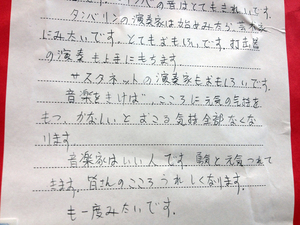 の音はとてもきれいです。
タンバリンの演奏家は
にみたいです。とてもおもしろいです。打楽器
の演奏も上手にもちます。
サスクネットの演奏家もおもしろいです。
音楽をきけば、こころに元気の気持を
もつ、かなしいと
気持全部なくな
ります。
音楽家はいい人です。
と元気つれて
きます。皆さんのこころうれしくなります。
も一度みたいです。